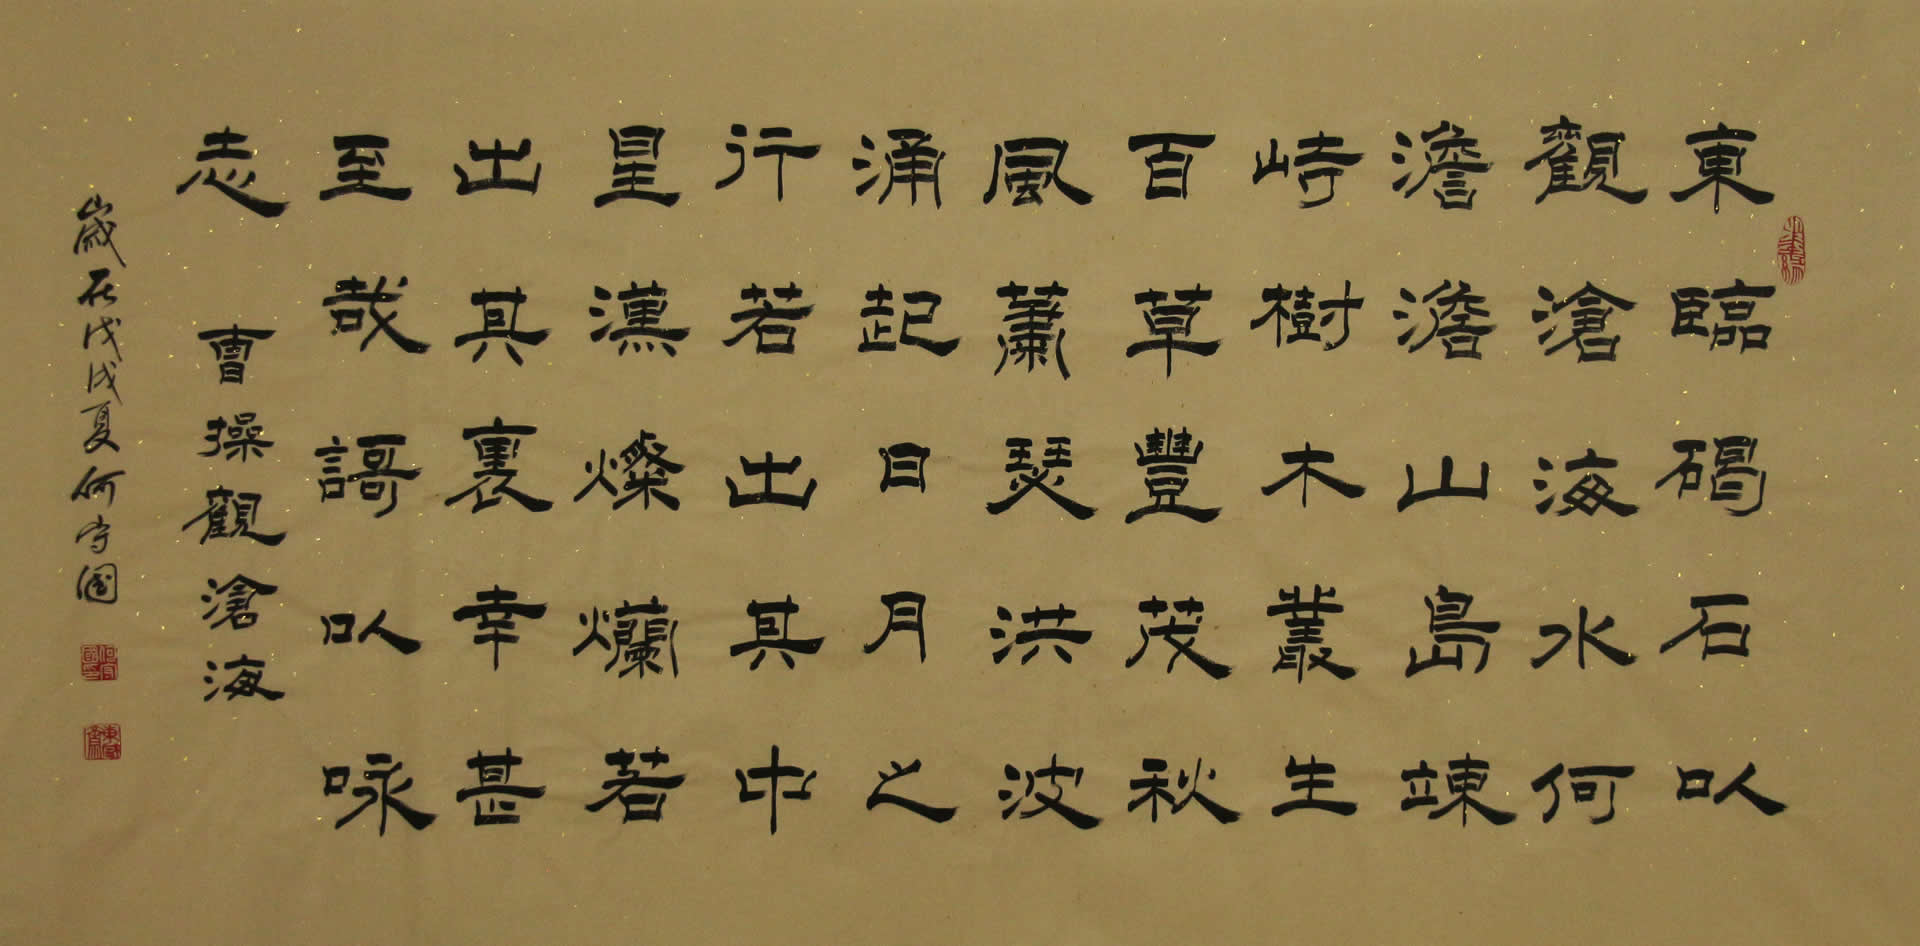 東臨碣石以
觀滄海水何
澹澹山島竦
峙樹木叢生
百草豐茂秋
風蕭瑟洪波
涌起日月之
行若出其中
星漢燦爛若
出其裏幸甚
至哉謌以咏
志 曹操觀滄海
歲在戊戌夏何守國